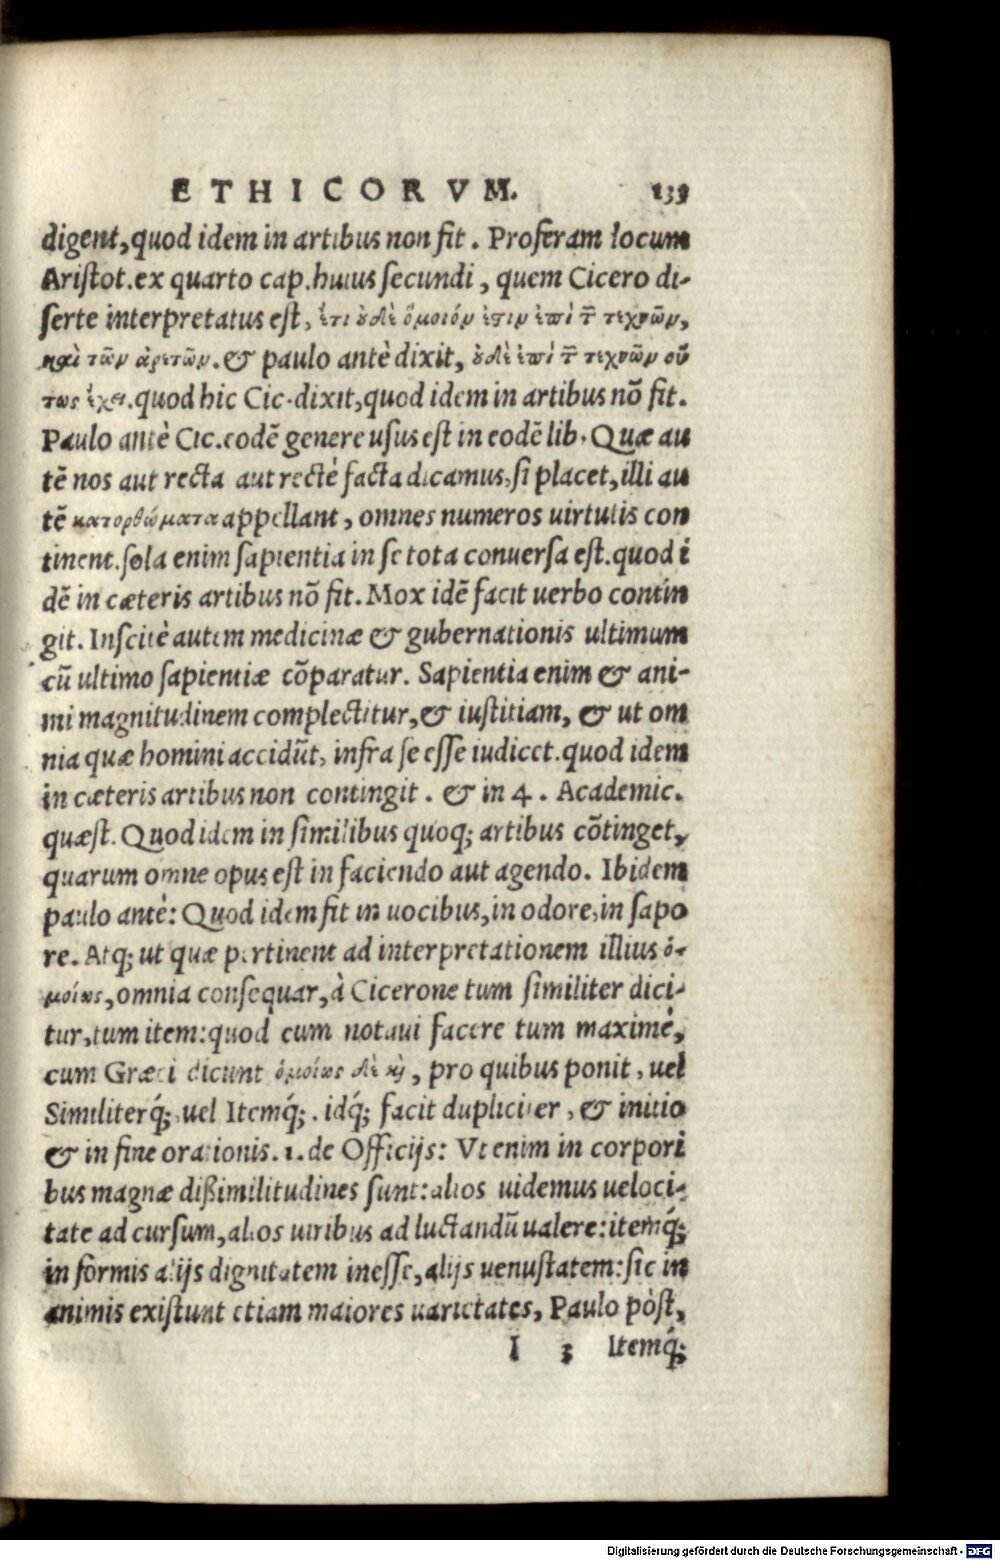 ETHICORVM. 133
digent, quod idem in artibus non fit. Proferam locum
Aristot. ex quarto cap. huius secundi, quem Cicero di-
serte interpretatus est, ἔτι οὐδὲ ὅμοιόν ἐστιν ἐπί τε τεχνῶν,
καὶ τῶν ἀρετῶν. & paulo antè dixit, οὐδὲ ἐπὶ τ τεχνῶν οὕ
τως ἔχει. quod hic Cic. dixit, quod idem in artibus nõ fit.
Paulo antè Cic. eodẽ genere usus est in eodẽ lib. Quæ au
tẽ nos aut recta aut rectè facta dicamus, si placet, illi au
tẽ κατορθώματα appellant, omnes numeros uirtutis con
tinent. sola enim sapientia in se tota conuersa est. quod i
dẽ in cæteris artibus nõ fit. Mox idẽ facit uerbo contin
git. Inscitè autem medicinæ & gubernationis ultimum
cũ ultimo sapientiæ cõparatur. Sapientia enim & ani-
mi magnitudinem complectitur, & iustitiam, & ut om
nia quæ homini accidũt, infra se esse iudicet. quod idem
in cæteris artibus non contingit. & in 4. Academic.
quæst. Quod idem in similibus quoq; artibus cõtinget,
quarum omne opus est in faciendo aut agendo. Ibidem
paulo antè: Quod idem fit in uocibus, in odore, in sapo
re. Atq; ut quæ pertinent ad interpretationem illius ὁ-
μοίως, omnia consequar, à Cicerone tum similiter dici-
tur, tum item: quod cum notaui facere tum maximè,
cum Græci dicunt ὁμοίως δὲ καὶ, pro quibus ponit, uel
Similiterq́;, uel Itemq́;. idq́; facit dupliciter, & initio
& in fine orationis. 1. de Officijs: Vt enim in corpori
bus magnæ dißimilitudines sunt: alios uidemus ueloci-
tate ad cursum, alios uiribus ad luctandũ ualere: itemq́;
in formis alijs dignitatem inesse, alijs uenustatem: sic in
animis existunt etiam maiores uarietates, Paulo pòst,
I 3 Itemq́;
Digitalisierung gefördert durch die Deutsche Forschungsgemeinschaft - DFG